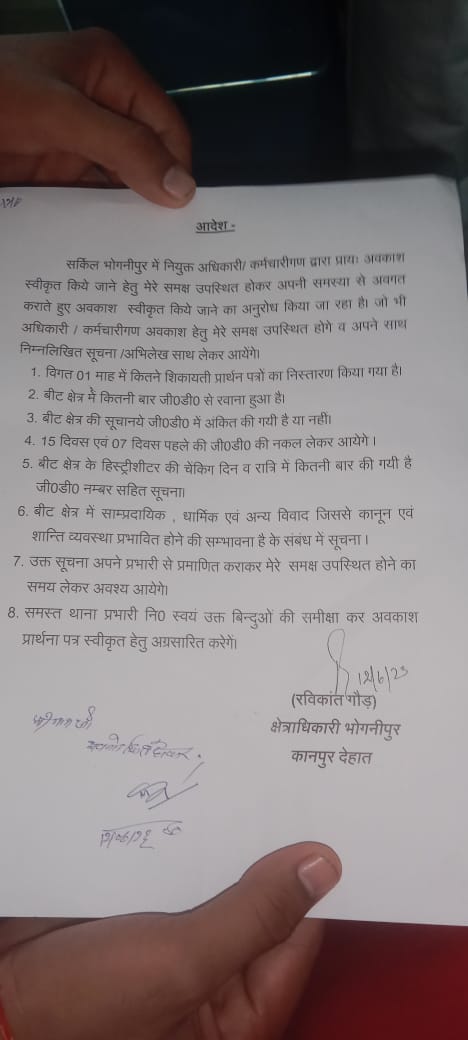 आदेश -
सर्किल भोगनीपुर में नियुक्त अधिकारी/ कर्मचारीगण द्वारा प्रायः अवकाश
स्वीकृत किये जाने हेतु मेरे समक्ष उपस्थित होकर अपनी समस्या से अवगत
कराते हुए अवकाश स्वीकृत किये जाने का अनुरोध किया जा रहा है। जो भी
अधिकारी / कर्मचारीगण अवकाश हेतु मेरे समक्ष उपस्थित होगे व अपने साथ
निम्नलिखित सूचना /अभिलेख साथ लेकर आयेंगे।
1. विगत 01 माह में कितने शिकायती प्रार्थन पत्रों का निस्तारण किया गया है।
2. बीट क्षेत्र में कितनी बार जी0डी0 से रवाना हुआ है।
3. बीट क्षेत्र की सूचानये जी0डी0 में अंकित की गयी है या नहीं।
4. 15 दिवस एवं 07 दिवस पहले की जी0डी0 की नकल लेकर आयेगे ।
5. बीट क्षेत्र के हिस्ट्रीशीटर की चेंकिग दिन व रात्रि में कितनी बार की गयी है
जी0डी0 नम्बर सहित सूचना।
6. बीट क्षेत्र में साम्प्रदायिक , धार्मिक एवं अन्य विवाद जिससे कानून एवं
शान्ति व्यवस्था प्रभावित होने की सम्भावना है के संबंध में सूचना ।
7. उक्त सूचना अपने प्रभारी से प्रमाणित कराकर मेरे समक्ष उपस्थित होने का
समय लेकर अवश्य आयेगे।
8. समस्त थाना प्रभारी नि0 स्वयं उक्त बिन्दुओं की समीक्षा कर अवकाश
प्रार्थना पत्र स्वीकृत हेतु अग्रसारित करेगें।
12/6/23
(रविकांत गौड़)
क्षेत्राधिकारी भोगनीपुर
कानपुर देहात